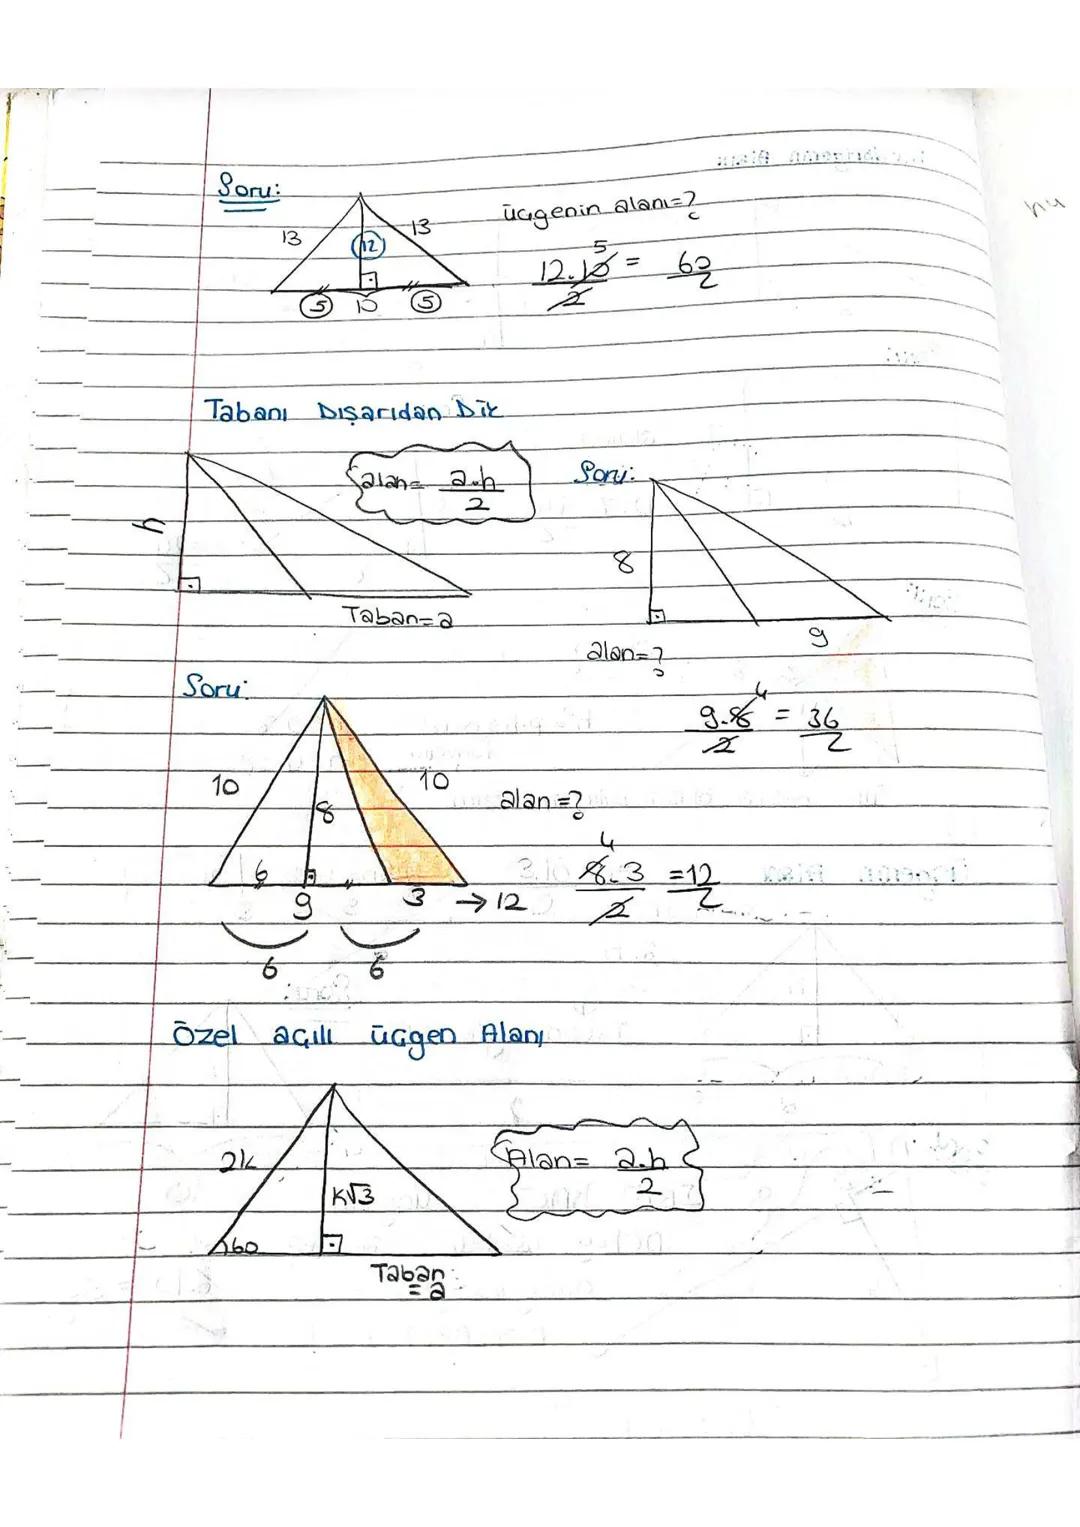 Soru:
üçgenin alanı=?
13 12 13
5 10 5
12.10 5 / 2 = 60
Tabanı Dışarıdan Dik
h
alan= a.h / 2
Taban=a
Soru:
8
9
alan=?
9.8 4 / 2 = 36
Soru:
10 8 10
6 9 3 → 12
6 6
alan=?
8.3 4 / 2 = 12
Özel açılı üçgen Alanı
2k k√3
60
Taban = a
Alan= a.h / 2